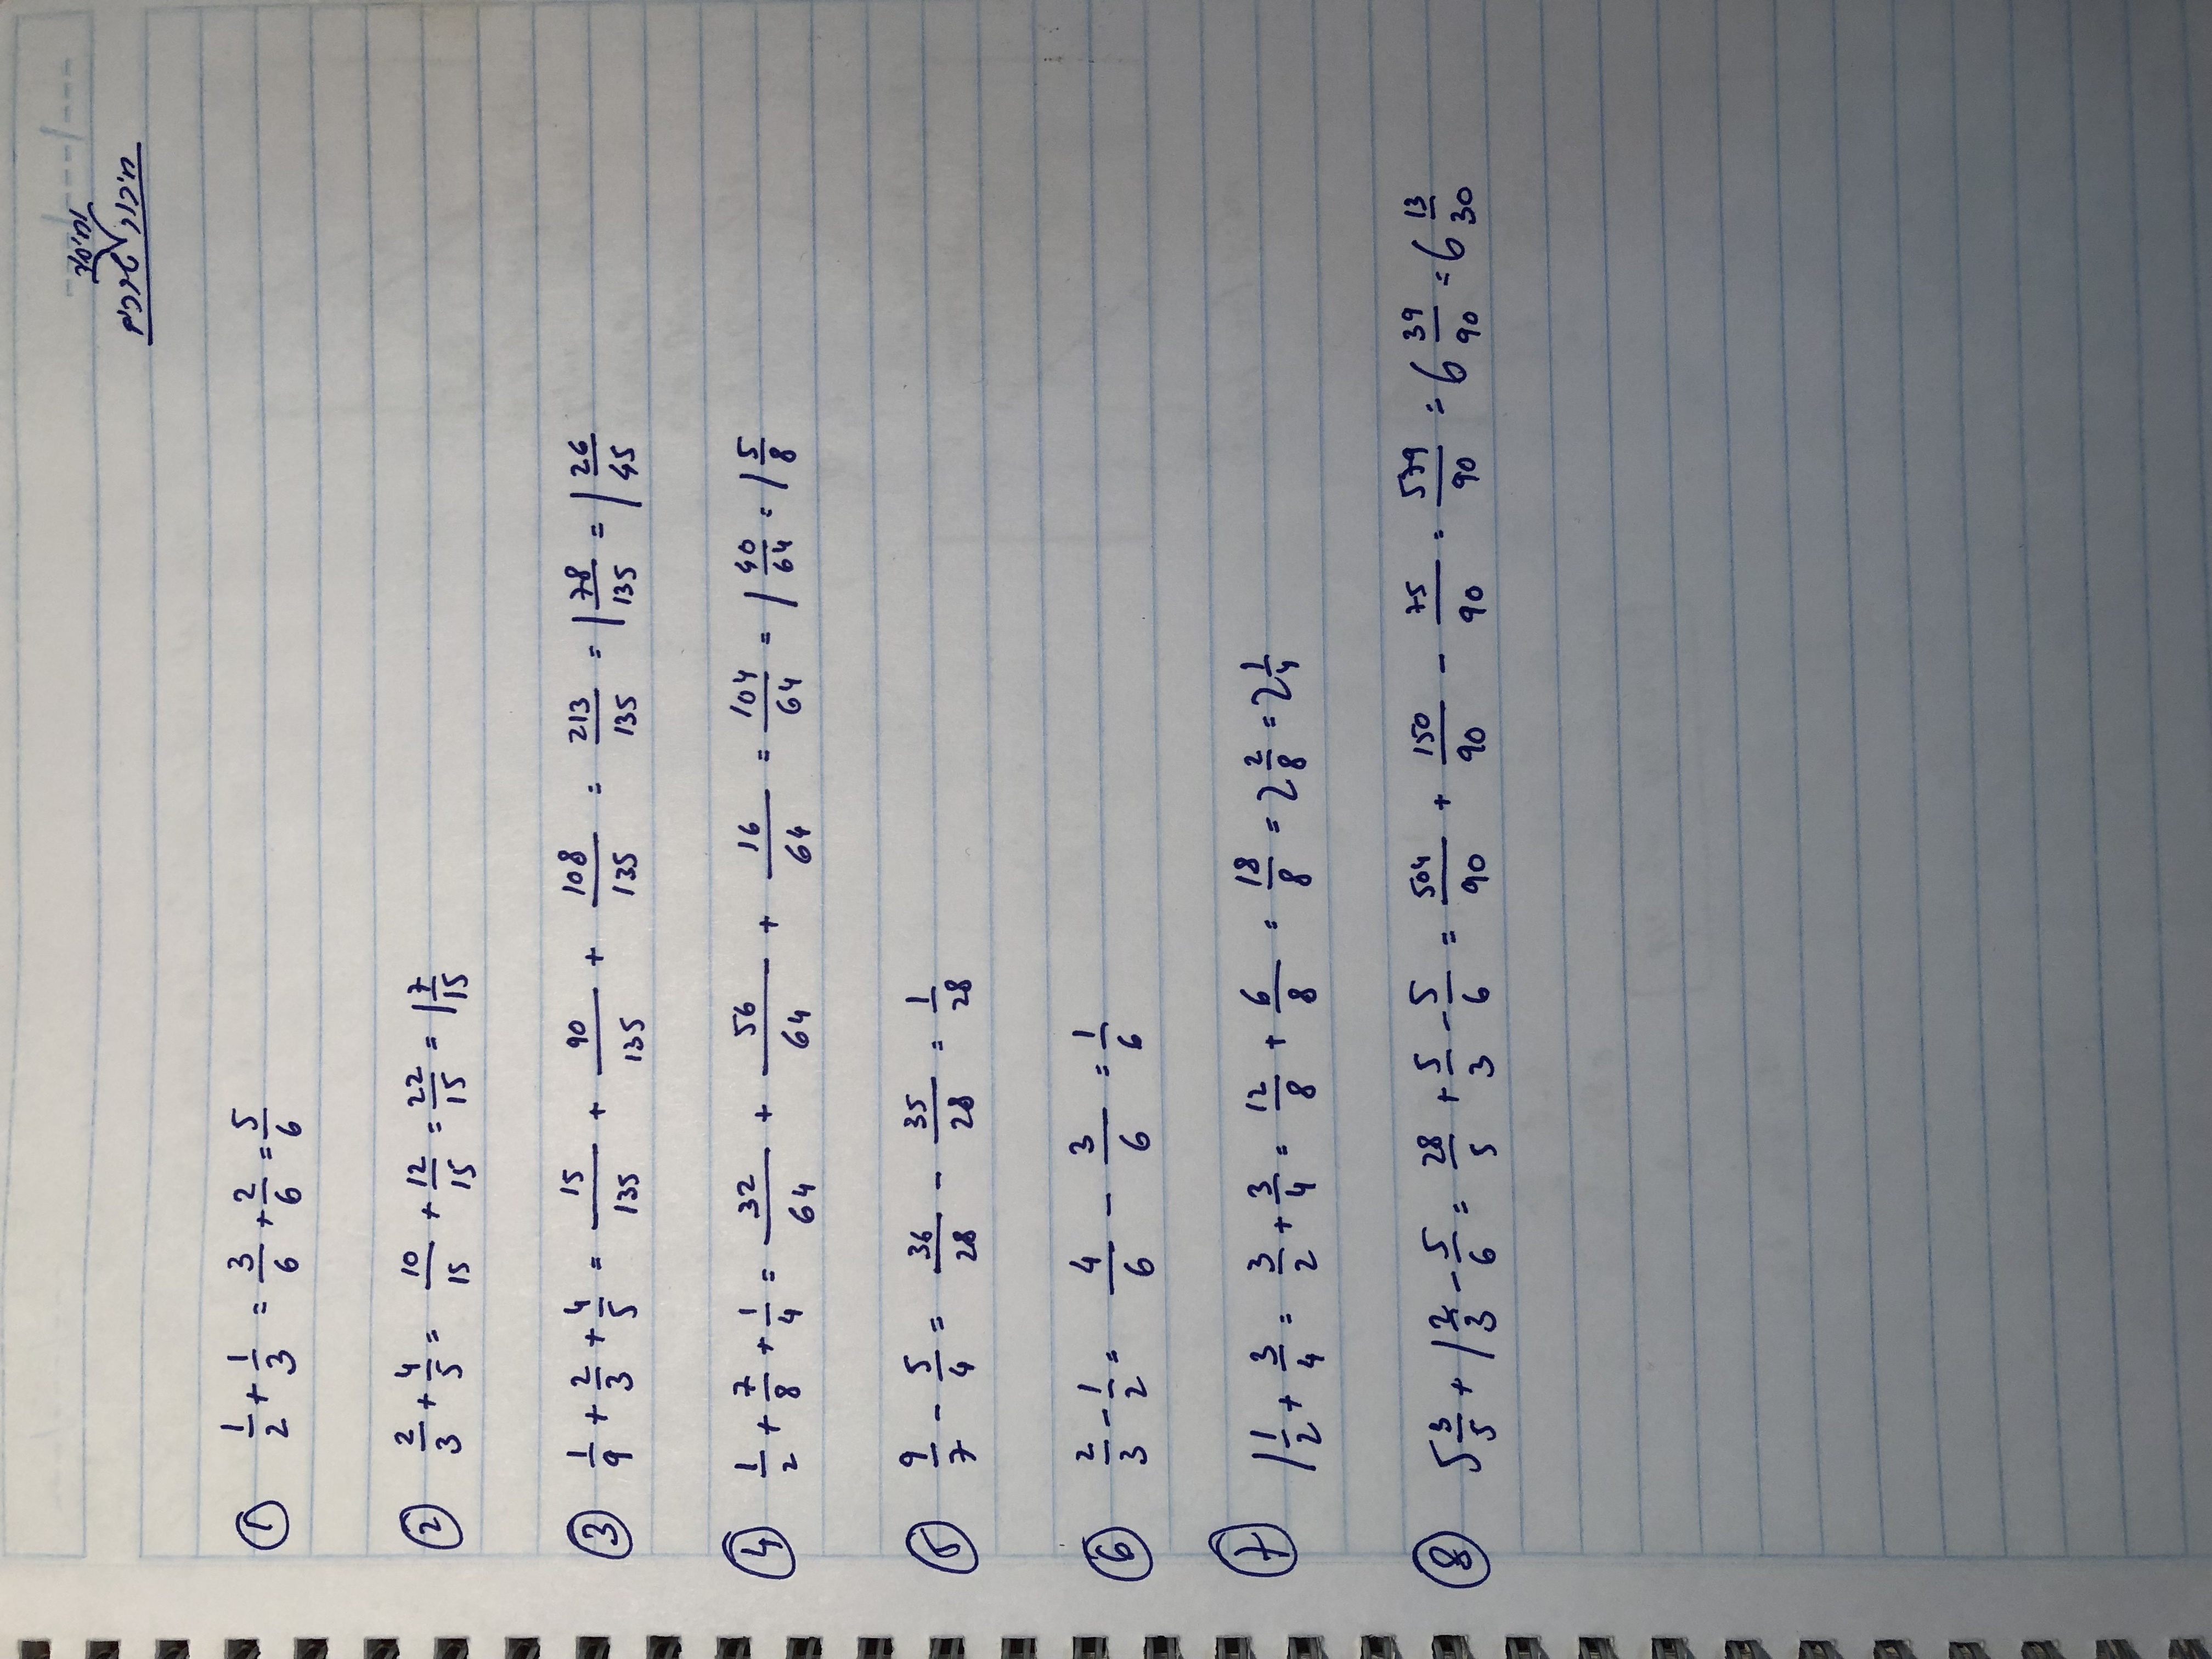 חיסור
חיבור שברים
① 1/2 + 1/3 = 3/6 + 2/6 = 5/6
② 2/3 + 4/5 = 10/15 + 12/15 = 22/15 = 1 7/15
③ 1/9 + 2/3 + 4/5 = 15/135 + 90/135 + 108/135 = 213/135 = 1 78/135 = 1 26/45
④ 1/2 + 7/8 + 1/4 = 32/64 + 56/64 + 16/64 = 104/64 = 1 40/64 = 1 5/8
⑤ 9/7 - 5/4 = 36/28 - 35/28 = 1/28
⑥ 2/3 - 1/2 = 4/6 - 3/6 = 1/6
⑦ 1 1/2 + 3/4 = 3/2 + 3/4 = 12/8 + 6/8 = 18/8 = 2 2/8 = 2 1/4
⑧ 5 3/5 + 1 2/3 - 5/6 = 28/5 + 5/3 - 5/6 = 504/90 + 150/90 - 75/90 = 579/90 = 6 39/90 = 6 13/30